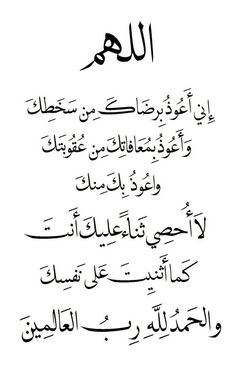 اللهم
إِني أَعُوذُ بِرِضَاكَ مِن سَخَطِكَ
وَأَعُوذُ بِمُعَافَاتِكَ مِن عُقُوبَتِكَ
واعُوذُ بِكَ مِنكَ
لَا أُحصِي ثَنَاءً عَلِيكَ أَنتَ
كَمَا أَثنِيتَ عَلَى نَفسِكَ
والحَمدُ لِلَّهِ رِبُ العَالمِينَ